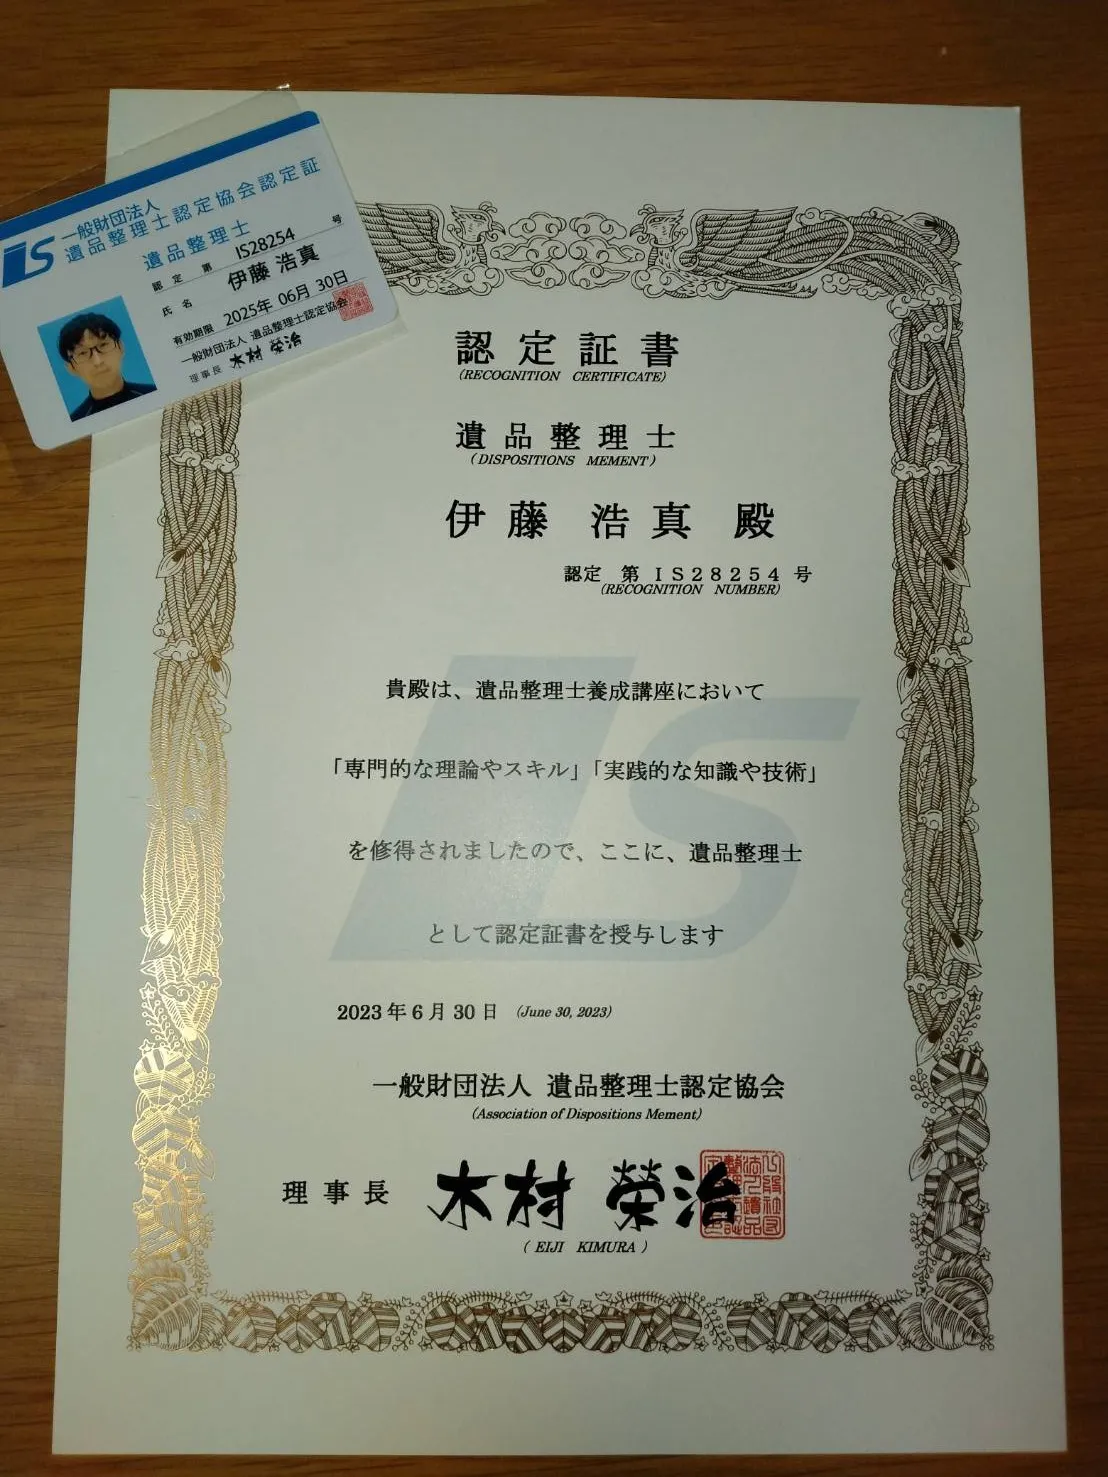 一般財団法人
遺品整理士認定協会認定証
遺品整理士
認定 第 IS28254 号
氏名 伊藤 浩真
有効期限 2025年 06月 30日
一般財団法人 遺品整理士認定協会
理事長 木村 榮治
IS
認定証書
(RECOGNITION CERTIFICATE)
遺品整理士
(DISPOSITIONS MEMENT)
伊藤 浩真 殿
認定 第 IS28254 号
(RECOGNITION NUMBER)
貴殿は、遺品整理士養成講座において
「専門的な理論やスキル」「実践的な知識や技術」
を修得されましたので、ここに、遺品整理士
として認定証書を授与します
IS
2023年6月30日 (June 30, 2023)
一般財団法人 遺品整理士認定協会
(Association of Dispositions Mement)
理事長 木村 榮治
(EIJI KIMURA)